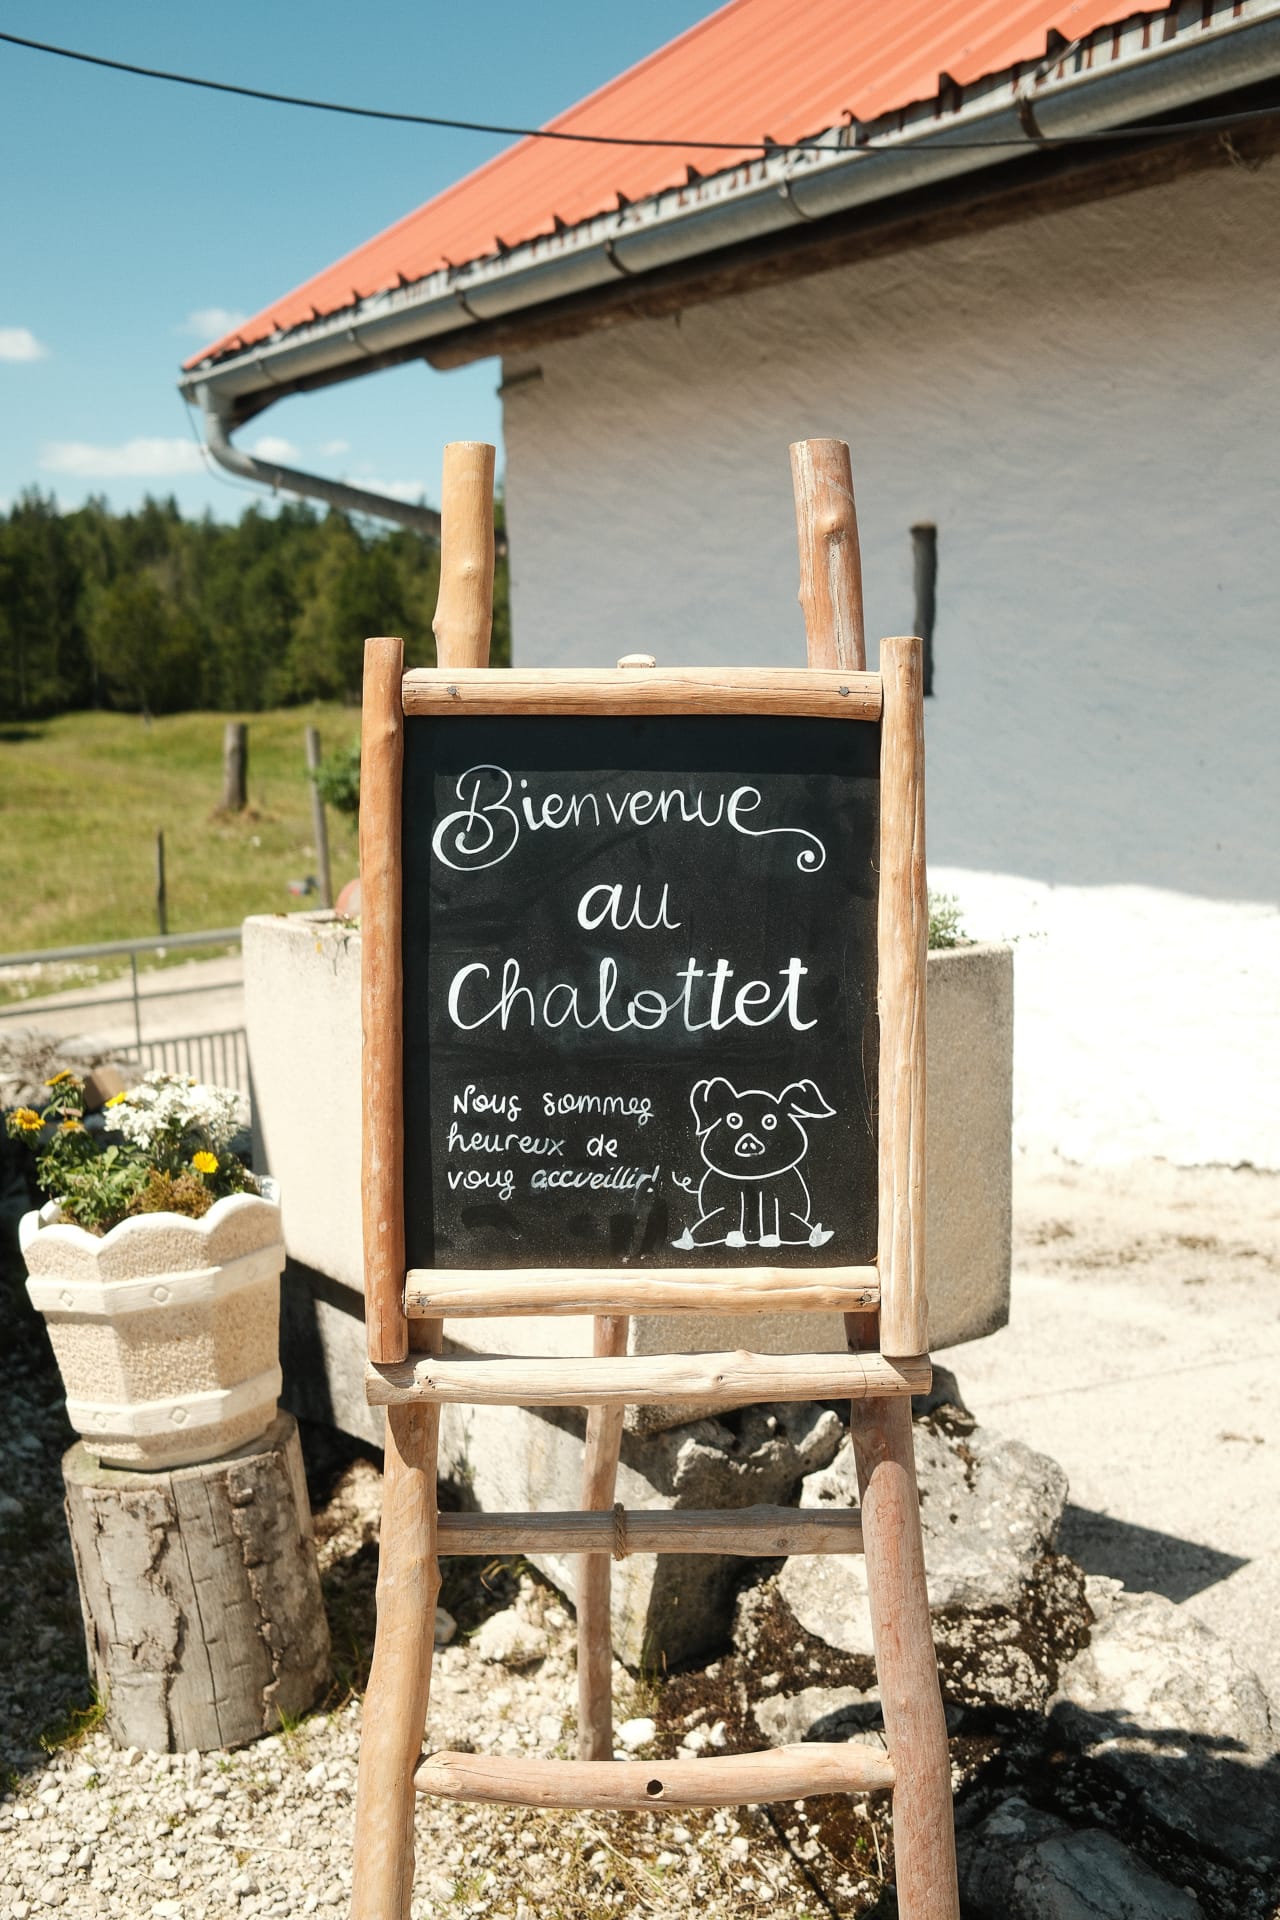 Bienvenue
au
Chalottet
Nous sommes
heureux de
vous accueillir!